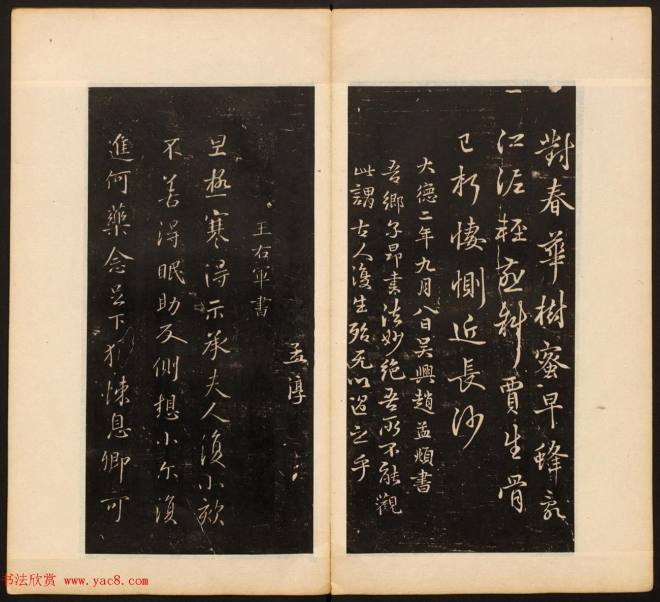 對春華樹蜜早蜂亂
江泥輕燕斜賈生骨
已朽悽惻近長沙
大德二年九月八日吳興趙孟頫書
吾鄉子昂書法妙絕吾所不能觀
此謂古人復生殆无以過之乎
孟淳
王右軍書
旦極寒得示承夫人復小欬
不善得眠助反側想小尔復
進何藥念足下猶悚息卿可
书法欣赏 www.yac8.com